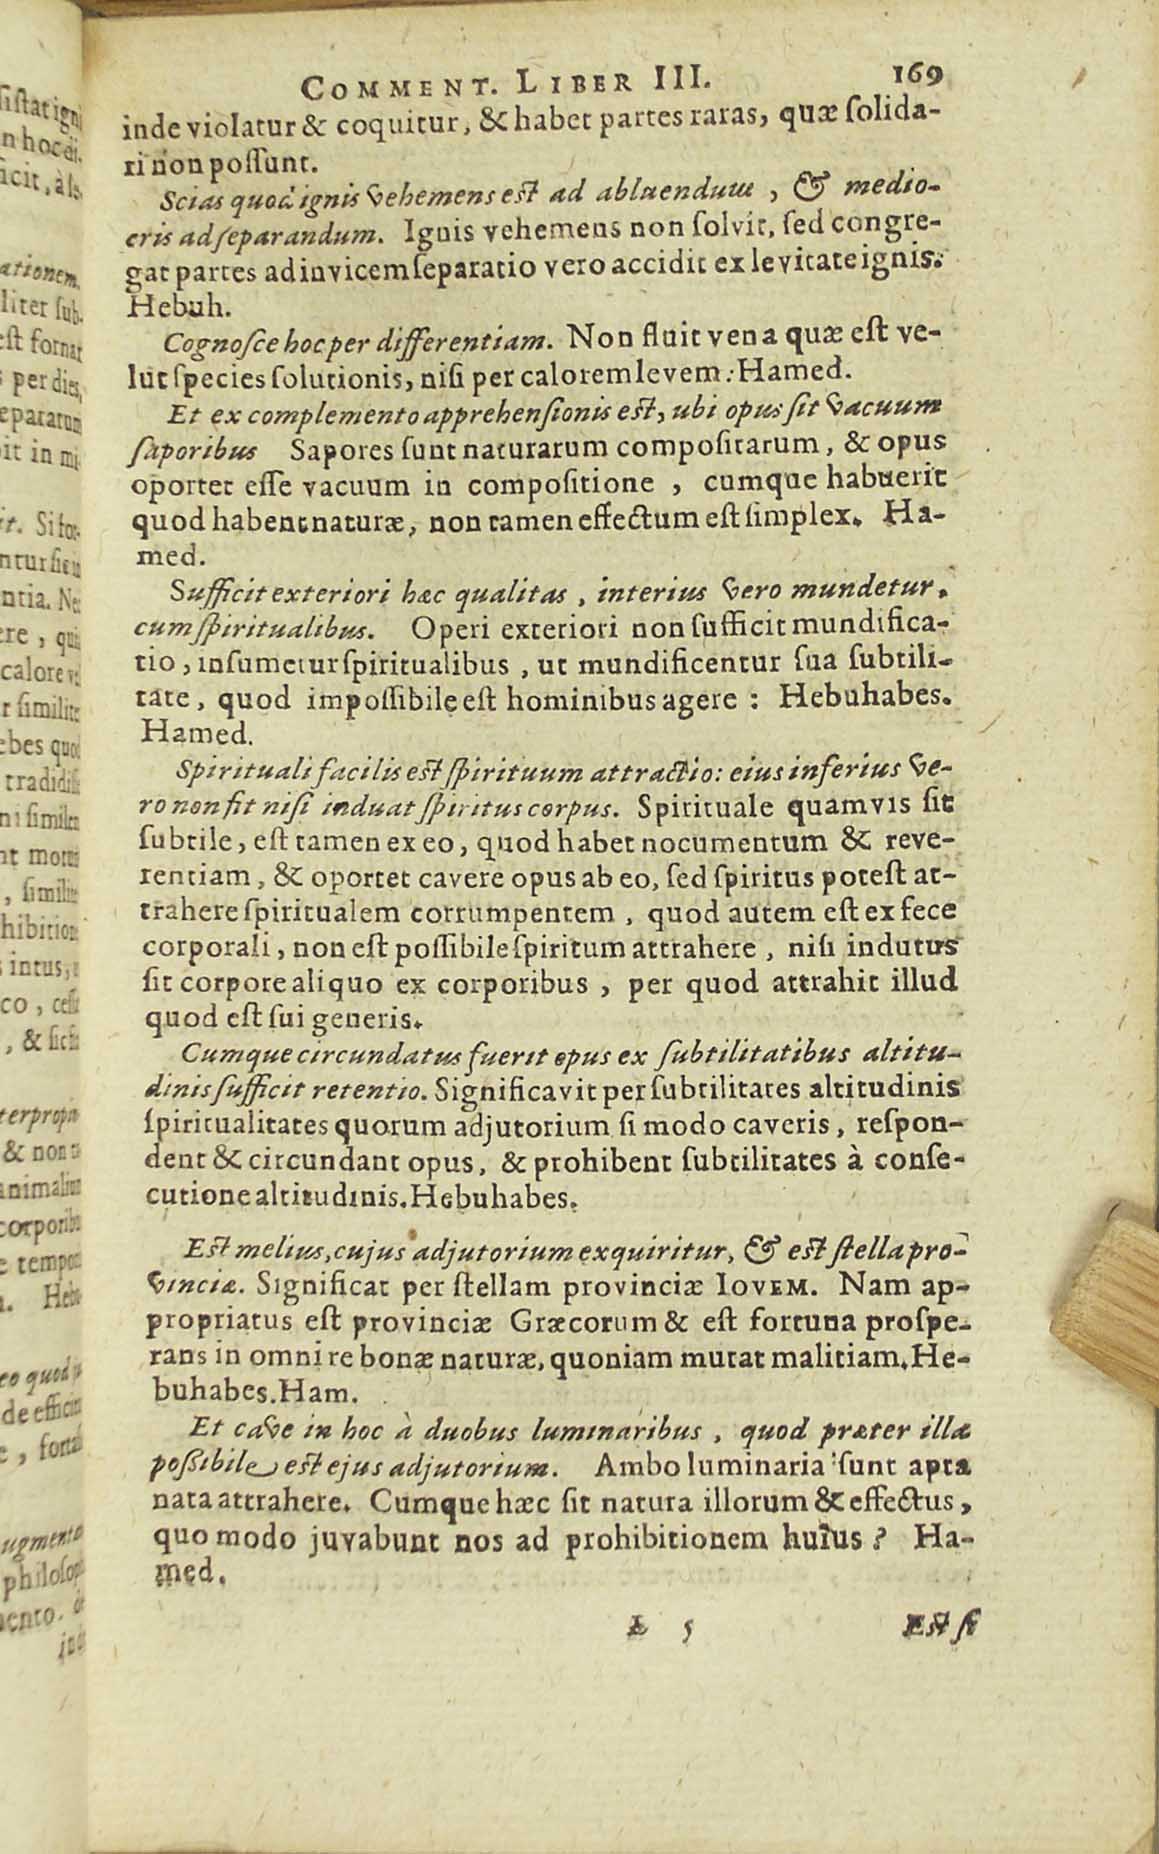 COMMENT. LIBER III. 169
inde violatur & coquitur, & habet partes raras, quæ ſolida-
ri non poſſunt.
Scias quod ignis vehemens eſt ad abluendum, & medio-
cris ad ſeparandum. Ignis vehemens non ſolvit, ſed congre-
gat partes adinvicem ſeparatio vero accidit ex levitate ignis.
Hebuh.
Cognoſce hoc per differentiam. Non fluit vena quæ eſt ve-
lut ſpecies ſolutionis, niſi per calorem levem: Hamed.
Et ex complemento apprehenſionis eſt, ubi opus ſit vacuum
ſaporibus Sapores ſunt naturarum compoſitarum, & opus
oportet eſſe vacuum in compoſitione, cumque habuerit
quod habent naturæ, non tamen effectum eſt ſimplex. Ha-
med.
Sufficit exteriori hæc qualitas, interius vero mundetur.
cum ſpiritualibus. Operi exteriori non ſufficit mundifica-
tio, inſumetur ſpiritualibus, ut mundificentur ſua ſubtili-
tate, quod impoſſibile eſt hominibus agere: Hebuhabes.
Hamed.
Spirituali facilis eſt ſpirituum attractio: eius inferius ve-
ro non fit niſi induat ſpiritus corpus. Spirituale quamvis ſit
ſubtile, eſt tamen ex eo, quod habet nocumentum & reve-
rentiam, & oportet cavere opus ab eo, ſed ſpiritus poteſt at-
trahere ſpiritualem corrumpentem, quod autem eſt ex fece
corporali, non eſt poſſibile ſpiritum attrahere, niſi indutus
ſit corpore aliquo ex corporibus, per quod attrahit illud
quod eſt ſui generis.
Cumque circundatus fuerit opus ex ſubtilitatibus altitu-
dinis ſufficit retentio. Significavit per ſubtilitates altitudinis
ſpiritualitates quorum adjutorium ſi modo caveris, reſpon-
dent & circundant opus, & prohibent ſubtilitates à conſe-
cutione altitudinis. Hebuhabes.
Eſt melius, cujus adjutorium exquiritur, & eſt ſtella pro-
vinciæ. Significat per ſtellam provinciæ IOVEM. Nam ap-
propriatus eſt provinciæ Græcorum & eſt fortuna proſpe-
rans in omni re bonæ naturæ, quoniam mutat malitiam. He-
buhabes. Ham.
Et cave in hoc à duobus luminaribus, quod præter illa
poſſibile eſt ejus adjutorium. Ambo luminaria ſunt apta
nata attrahere. Cumque hæc ſit natura illorum & effectus,
quo modo juvabunt nos ad prohibitionem huius? Ha-
med.
L 5 Eſt ſi